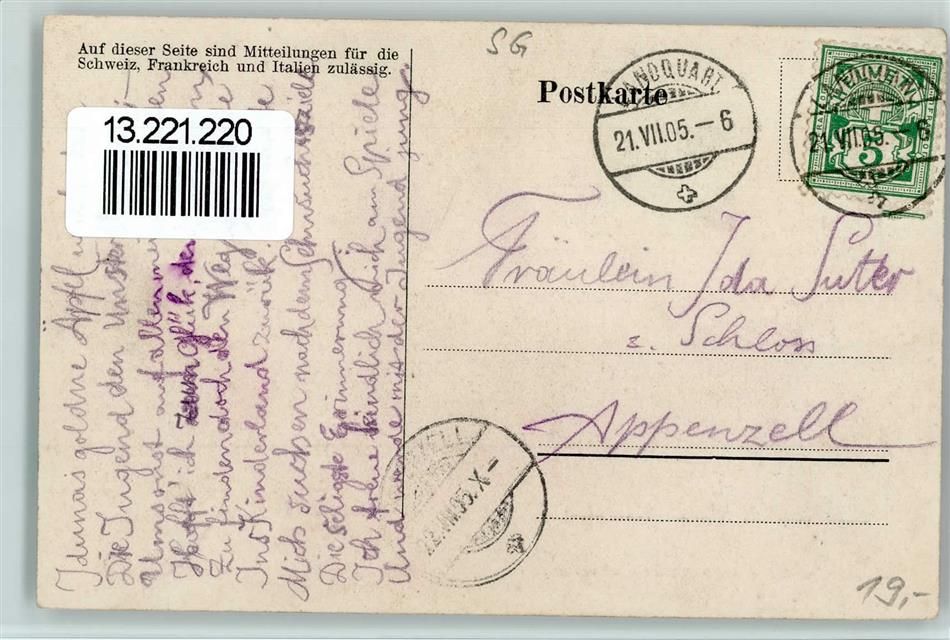 Auf dieser Seite sind Mitteilungen für die
Schweiz, Frankreich und Italien zulässig.
SG
Postkarte
LANDQUART
21.VII.05.–6
21.VII.05.–6
5
13.221.220
Fräulein Ida Suter
z. Schloss
Appenzell
22.VII.05.X–
19,-
Idunas goldne Äpfel
Die Jugend den
Umsonst auf allen
Hofft' ich zum glük, des
Zu finden doch den Weg
Ins Kinderland zurük.
Mich suchen nach dem
Die seligste Erinnerung
Ich freue kindlich mich am Spiele
Und werde mit der Jugend jung.